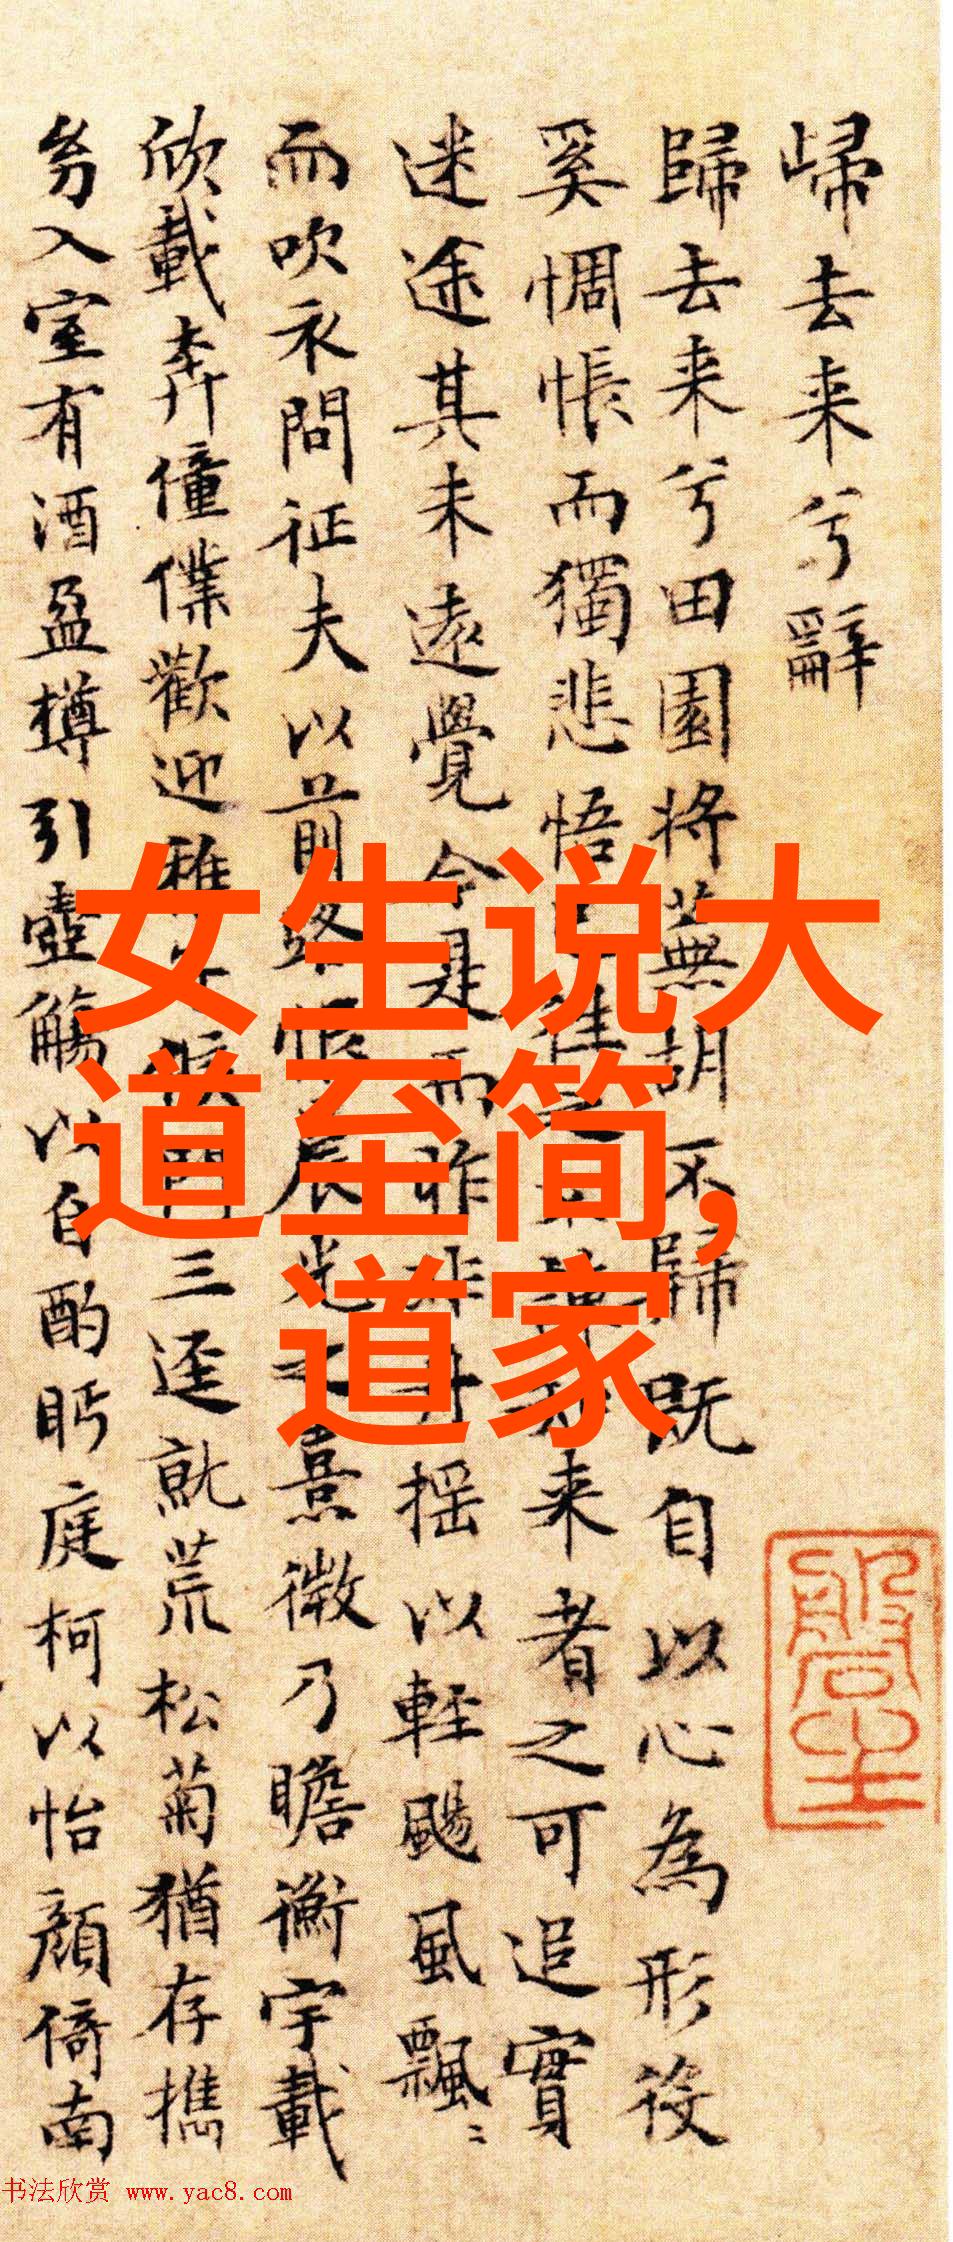 歸去来兮辭
歸去来兮田園将蕪胡不歸既自以心為形役
奚惆悵而獨悲悟 来者之可追實
迷途其未遠覺今是而昨非舟摇以輕颺風飄〻
而吹衣問征夫以前 晨光之熹微乃瞻衡宇載
欣載奔僮僕歡迎稚 三逕就荒松菊猶存携
㓜入室有酒盈樽引壺觴以自酌眄庭柯以怡顔倚南
女生说大
道至简,
道家
书法欣赏 www.yac8.com